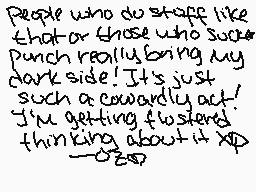 people who do stuff like
that or those who sucker
punch really bring my
dark side! It's just
such a cowardly act!
I'm getting flustered
thinking about it XD